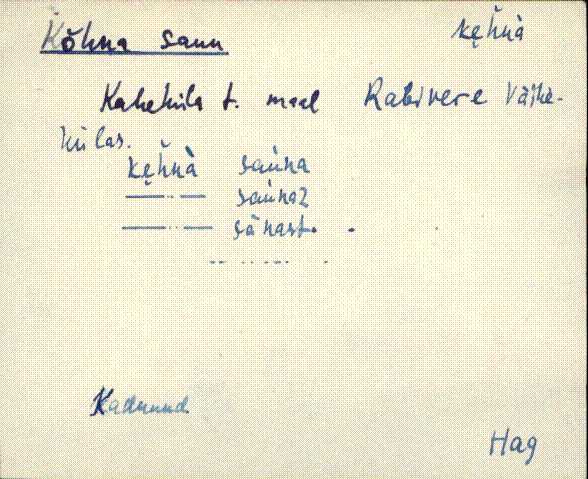 Kõhna saun
kȩȟnà
Kaheküla t. maal Rabivere Väike-
külas.
kȩȟnà saùna
—··— saùnaz
—··— sànast.
Kadunud
Hag